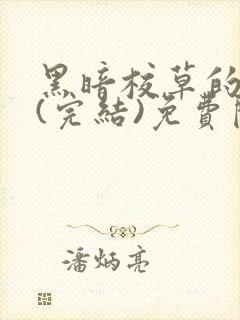 黑暗校草的
(完結)免費
潘炳亮